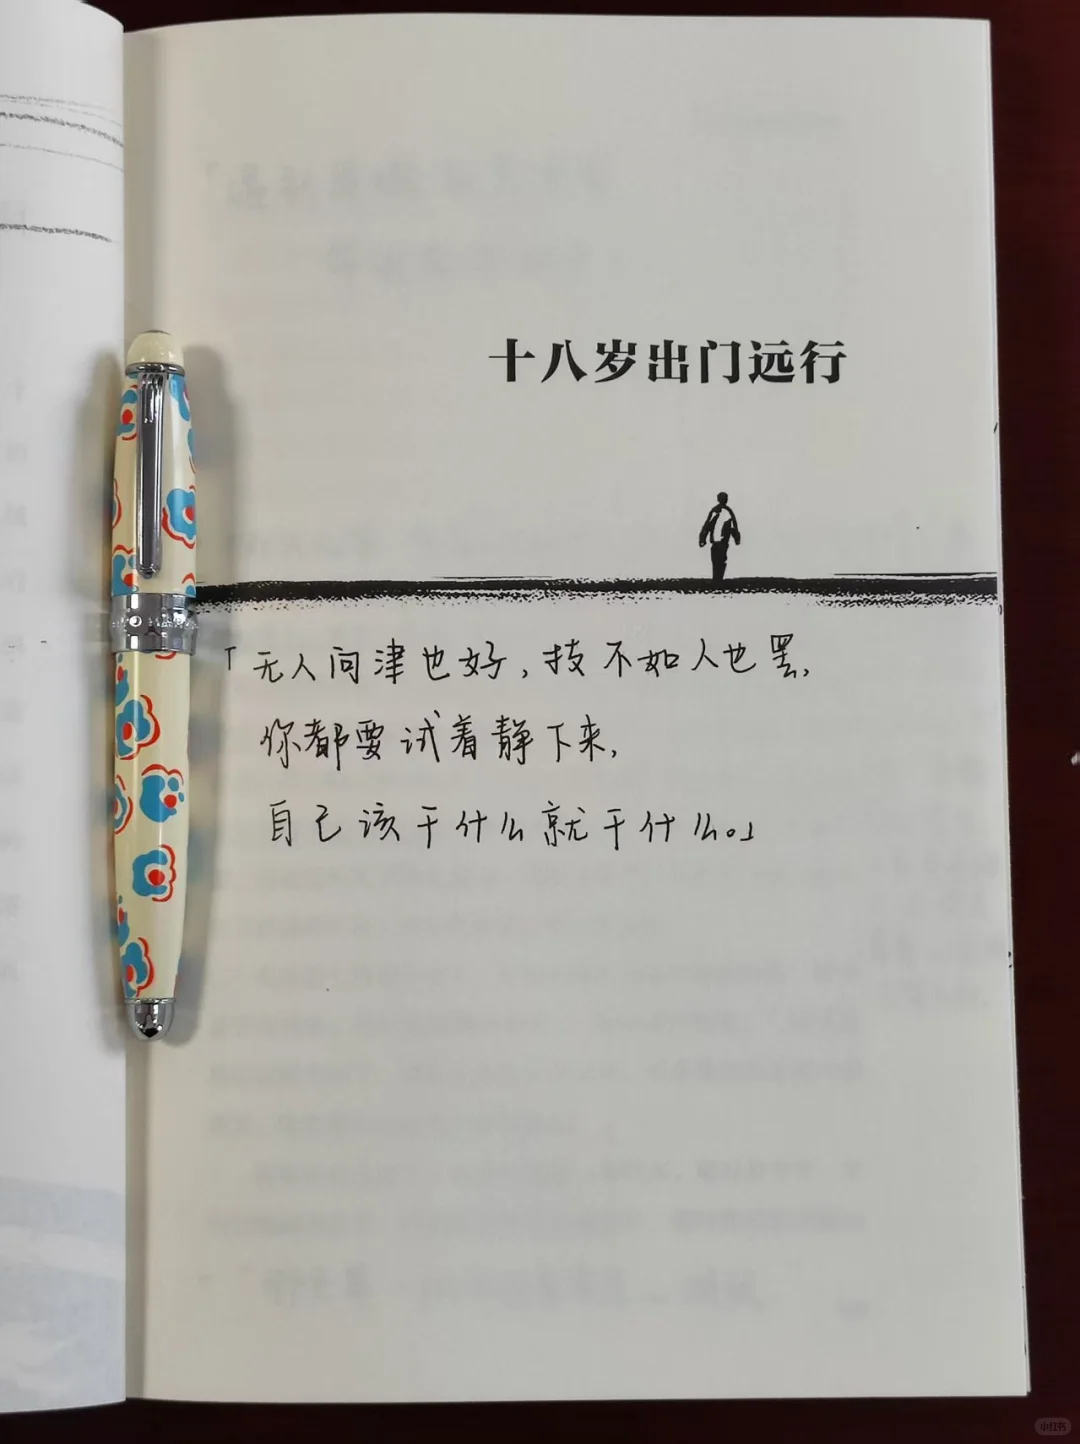 十八岁出门远行
「无人问津也好,技不如人也罢,
你都要试着静下来,
自己该干什么就干什么。」
小红书